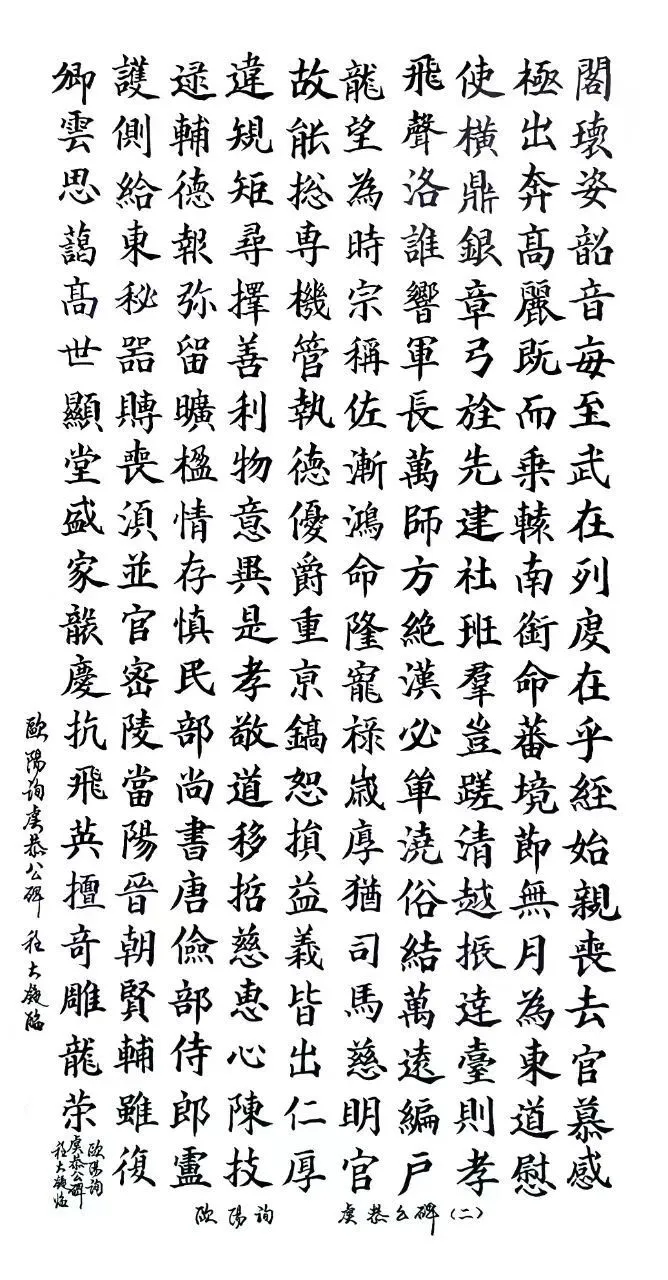 閣瓌姿韶音每至武在列度在乎經始親喪去官慕感
極出奔高麗既而乗轅南銜命蕃境節無月為東道慰
使橫鼎銀章弓旌先建社班羣豈蹉清越振達臺則孝
飛聲洛誰響軍長萬師方絕漢必单澆俗結萬遠編戶
龍望為時宗稱佐漸鴻命隆寵祿歲厚猶司馬慈明官
故能揔専機管執德優爵重京鎬恕損益義皆出仁厚
違規矩尋擇善利物意異是孝敬道移哲慈恵心陳技
逯輔德報弥留曠楹情存慎民部尚書唐儉部侍郎盧
護側給東秘器賻喪湏並官密陵當陽晉朝賢輔雖復
卿雲思藹髙世顯堂盛家龑慶抗飛英擅奇雕龍荣
歐陽詢虞恭公碑 程大凝臨
歐陽詢
虞恭公碑
程大凝临
歐陽詢 虞恭公碑（二）